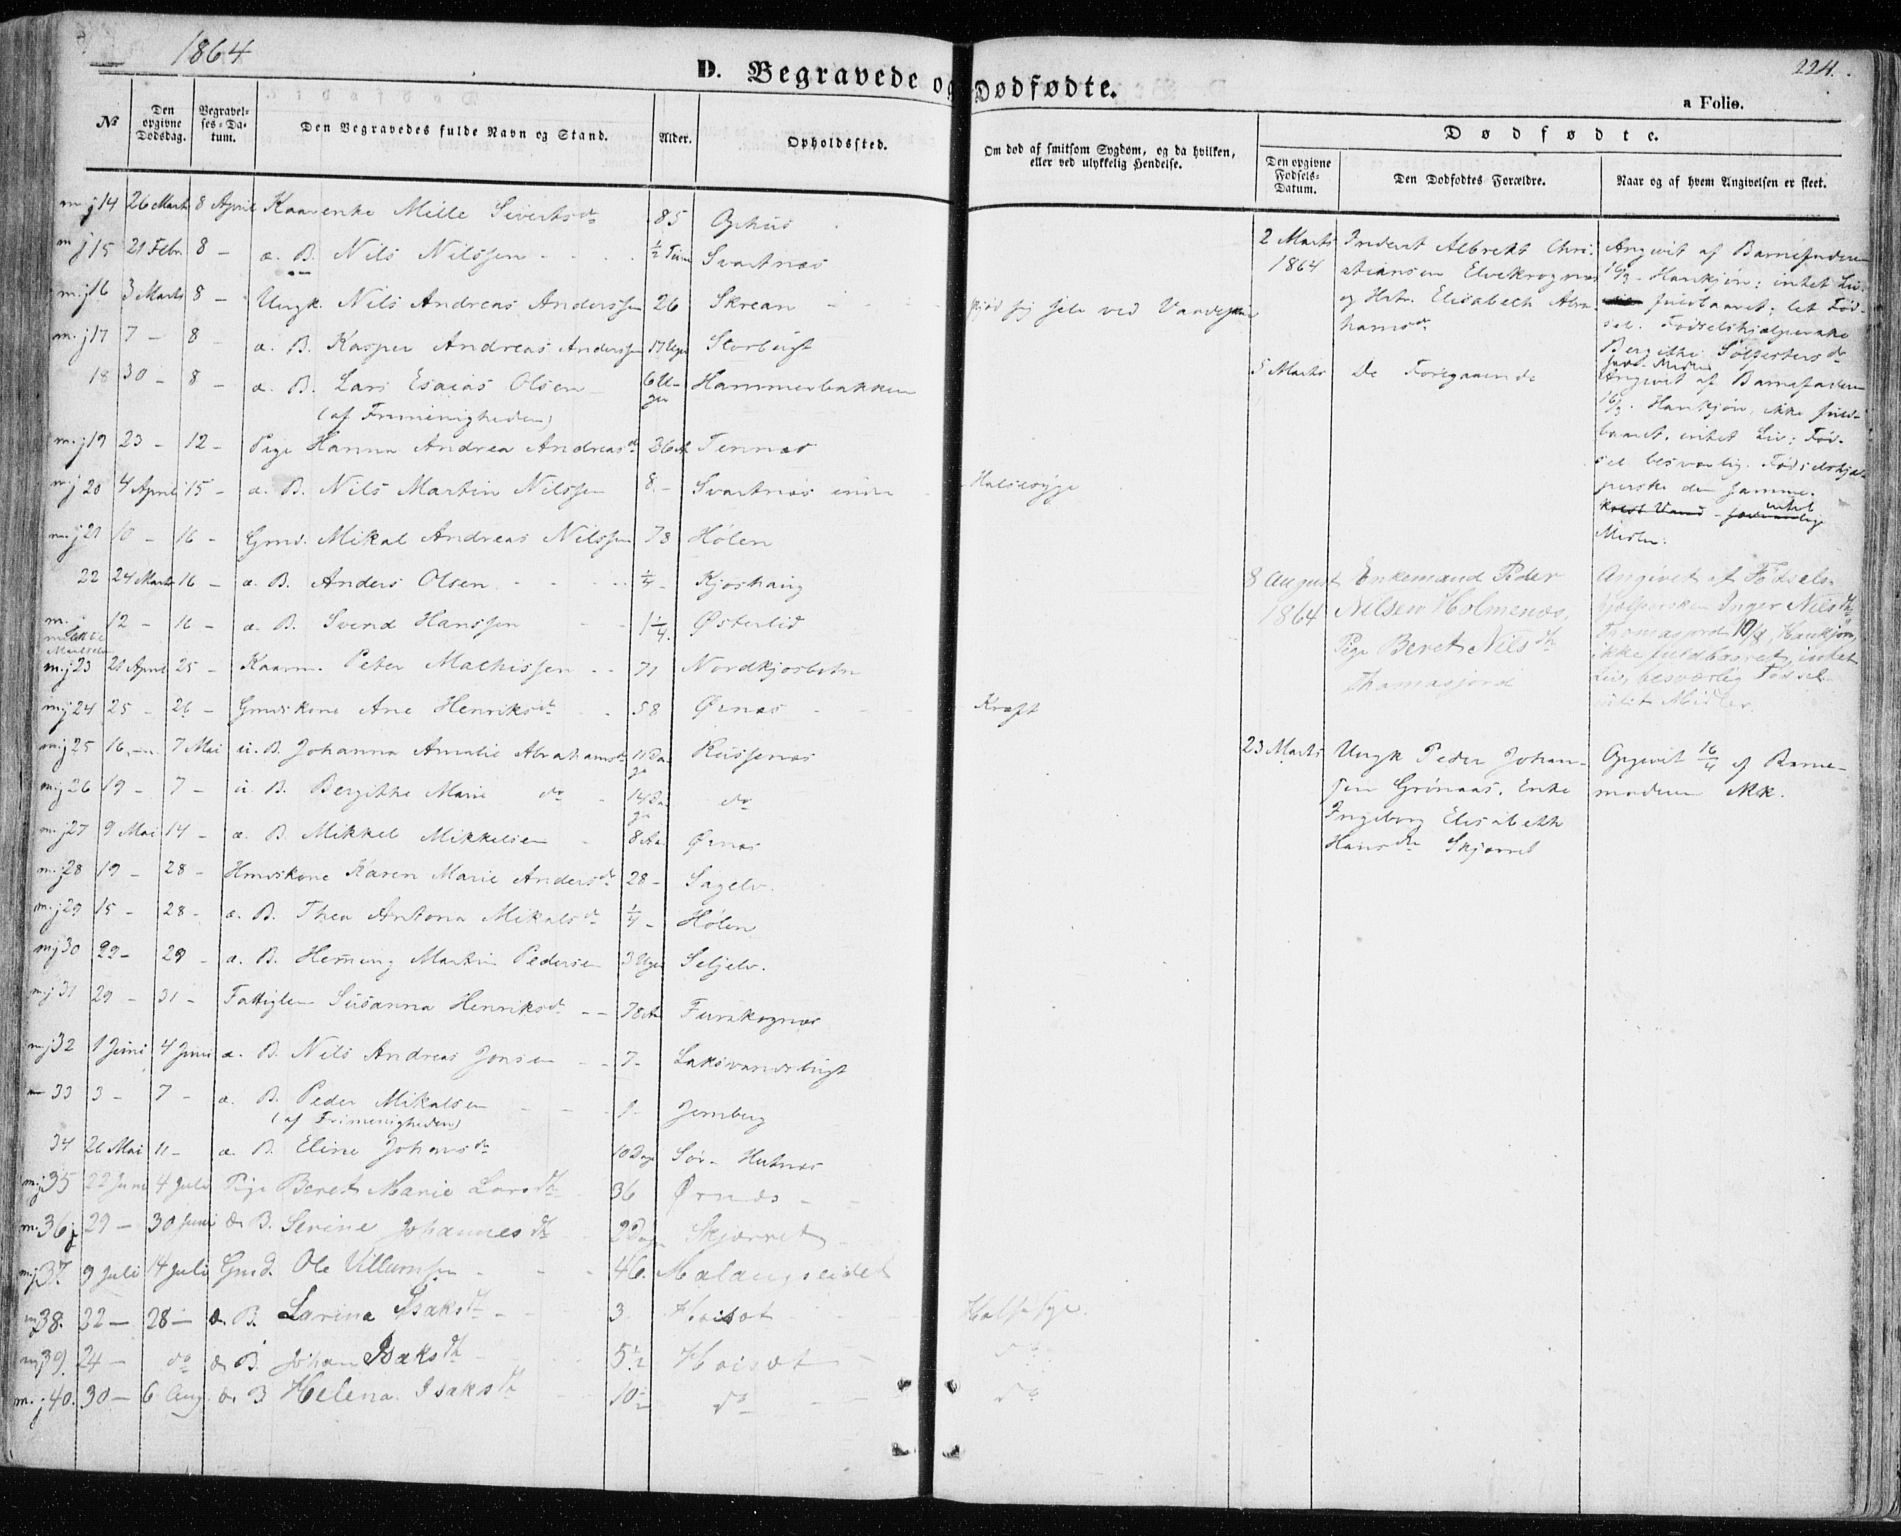 1864
D. Begravede og Dødfødte.
224.
a Folio.
No
Den opgivne Dødsdag.
Begravelses-Datum.
Den Begravedes fulde Navn og Stand.
Alder.
Opholdssted.
Om død af smitsom Sygdom, og da hvilken, eller ved ulykkelig Hendelse.
Dødfødte.
Den opgivne Fødsels-Datum.
Den Dødfødtes Forældre.
Naar og af hvem Angivelsen er skeet.
14 26 Marts 8 April Kaarenke Mille Sivertsdr 85 Ophus
15 21 Febr 8 - æ. B. Nils Nilssen ½ Time Svartnæs
16 3 Marts 8 - Ungk. Nils Andreas Anderssen 26 Skrean
17 7 - 8 - æ. B. Kasper Andreas Anderssen 17 Uger Storbugt
18 30 - 8 - æ. B. Lars Esaias Olsen 6 Uger Hammerbakken
(af Frimenigheden)
19 23 - 12 - Pige Hanna Andrea Andreasdr 26 A Tennæs
20 4 April 15 - æ. B. Nils Martin Nilssen 8 - Svartnæs indre Halssyge
21 10 - 16 - Gmd. Mikal Andreas Nilssen 73 Hølen
22 24 Marts 16 - æ. B. Anders Olsen ¼ - Kjoshaug
12 - 16 - æ. B. Svend Hanssen 1¼ Østerlid
23 21 April 25 - Kaarm. Peter Mathissen 71 Nordkjosbotn
24 25 - 26 - Gmdskone Ane Henriksdr 58 Ørnæs Kræft
25 16 - 7 Mai u. B. Johanna Amalie Abrahamsdr 11 Dage Russenæs
26 19 - 7 - u. B. Bergitte Marie do 14 Dage do
27 9 Mai 14 - æ. B. Mikkel Mikkelsen 8 Aar Ørnæs
28 19 - 28 - Hmdskone Karen Marie Andersdr 28 - Sagelv.
29 15 - 28 - æ. B. Thea Antona Mikalsdr ¼ - Hølen
30 22 - 29 - æ. B. Heming Martin Pedersen 3 Uger Seljelv.
31 29 - 31 - Fattiglem Susanna Henriksdr 78 Aar Furskognæs
32 1 Juni 4 Juni æ. B. Nils Andreas Jonsen 7 - Laksvandsbugt
33 3 - 7 - æ. B. Peder Mikalsen 1 - Jernberg
(af Frimenigheden)
34 26 Mai 11 - æ. B. Eline Johansdr 10 Dage Sør-Hutnæs
35 22 Juni 4 Juli Pige Beret Marie Larsdtr 36 Ørnæs
36 29 - 30 Juni æ. B. Serine Johannesdtr 2 Dage Skjæret
37. 9 Juli 14 Juli Gmd. Ole Villumsen 46. Malangseidet
38. 22 - 28 - æ. B. Larina Isaksdtr 3 Høisæt Halssyge.
39. 24 - do æ. B. Johan Isaks dtr 5½ Høisæt do
40. 30 - 6 Aug. æ. B Helena Isaksdtr 10½ do do
2 Marts 1864
Inderst Albrekt Christiansen Elvekrognæs
og Hstr. Elisabeth Abrahamsdr
Angivet af Barnefaderen
16/3. Hankjøn; intet Liv.
fuldbaaret; let Fødsel. Fødselshjælperske
5 Marts De Foregaaende
Angivet af Barnefaderen
16/3. Hankjøn, ikke fuldbaaret, intet Liv; Fødsel besværlig. Fødselshjælperske den samme.
intet
Midler.
8 August 1864
Enkemand Peder
Nilsen Holmenæs,
Pige Beret Nilsdtr
Thomasjord
Angivet af Fødselshjælpersken Inger Nilsdtr
Thomasjord 10/8, Hankjøn,
ikke fuldbaaret, intet
Liv, besværlig Fødsel
intet Midler.
23 Marts
Ungk Peder Johansen Grønaas, Enke
Ingeborg Elisabeth
Hansdr Skjæret
Opgivet 16/4 af Barnemoderen